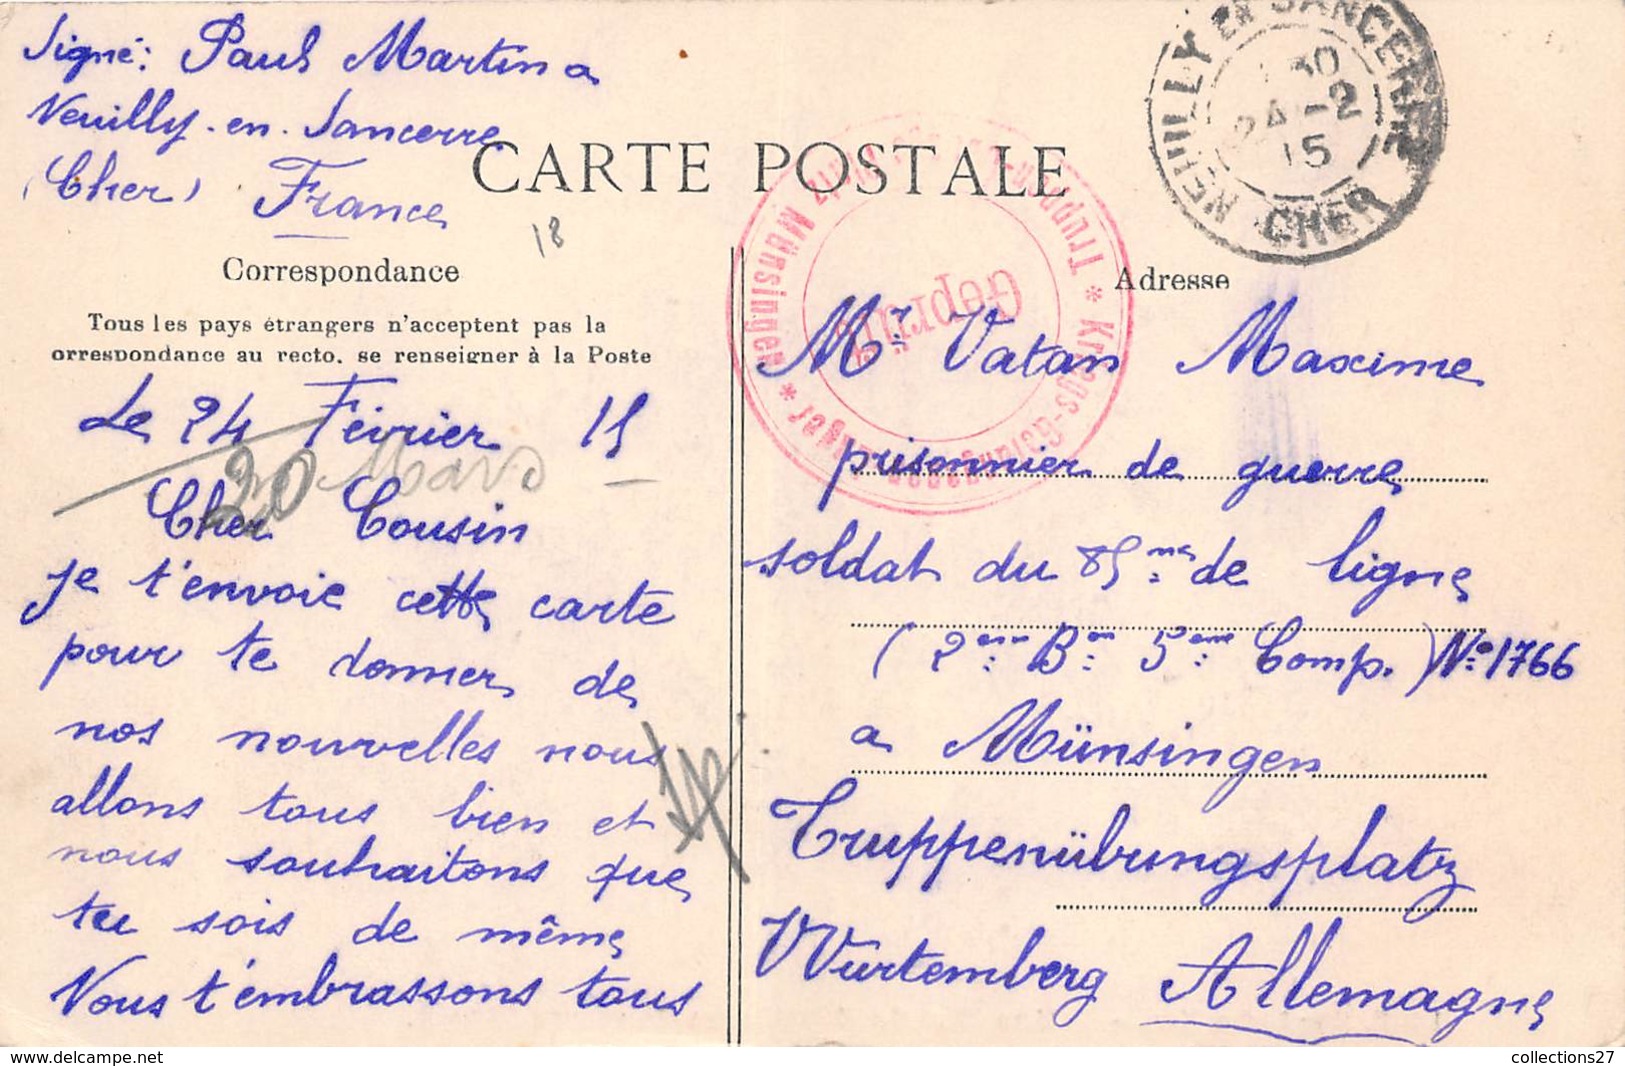 Signé: Paul Martin a
Neuilly-en-Sancerre
(Cher) France
18
CARTE POSTALE
NEUILLY EN SANCERRE
30
24-2
15
CHER
Truppen-Übungsplatz Münsingen * Kriegs-Gefangenen-Lager *
Geprüft
Correspondance
Tous les pays étrangers n'acceptent pas la
orrespondance au recto. se renseigner à la Poste
Le 24 Février 15
20 Mars
Cher Cousin
je t'envoie cette carte
pour te donner de
nos nouvelles nous
allons tous bien et
nous souhaitons que
tu sois de même
Nous t'embrassons tous
Adresse
Mr Vatan Maxime
prisonnier de guerre
soldat du 85me de ligne
(2ème Bon 5ème Comp.) No 1766
a Münsingen
Truppenübungsplatz
Wurtemberg Allemagne
collections27